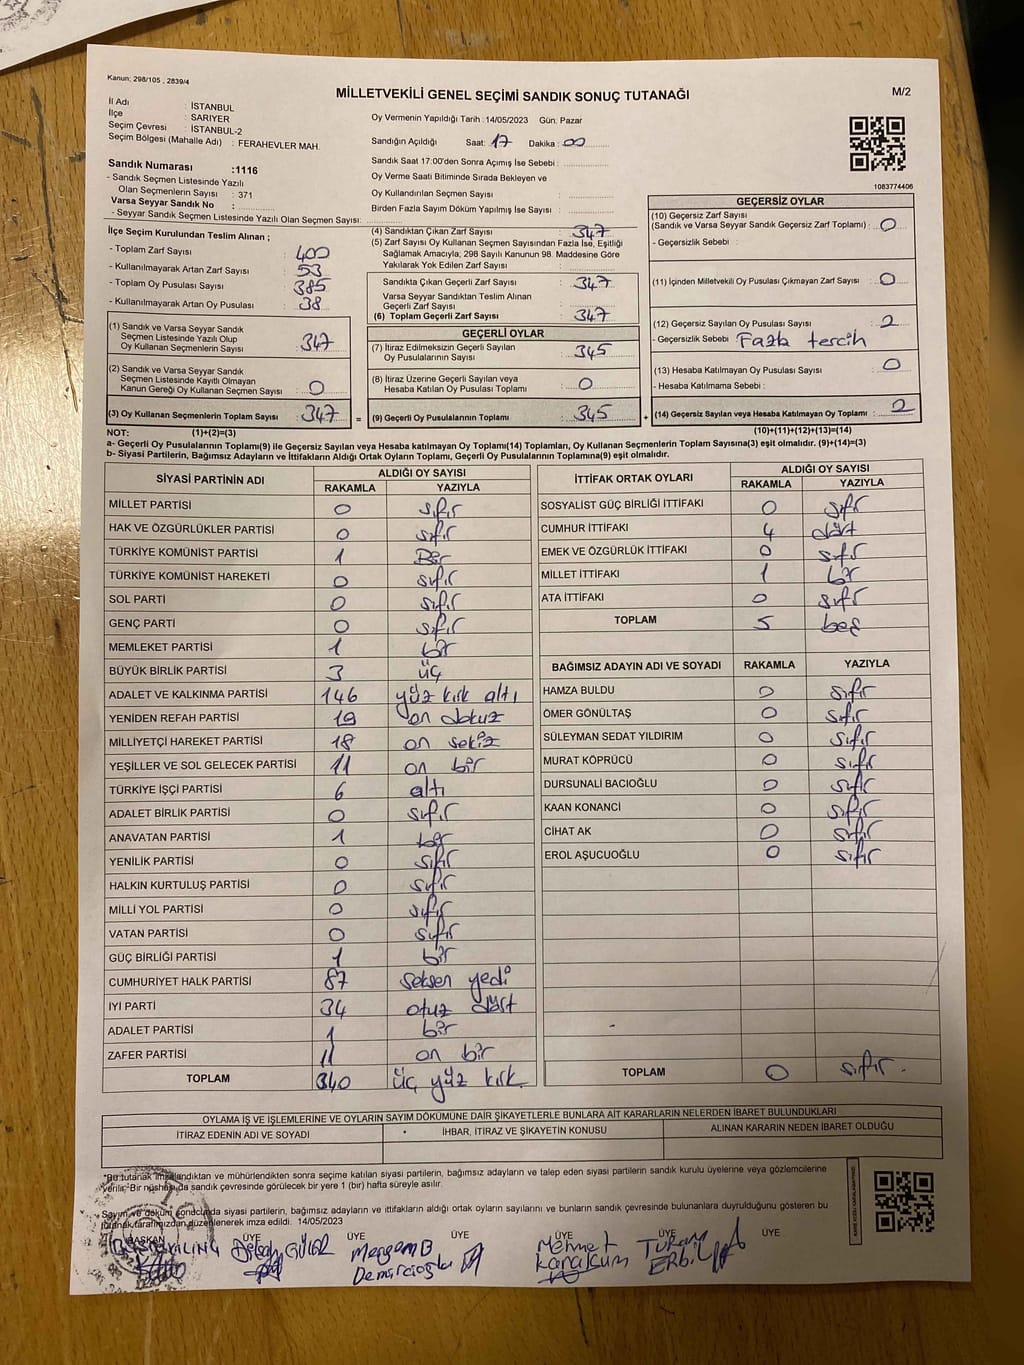 Kanun: 298/105 , 2839/4
MİLLETVEKİLİ GENEL SEÇİMİ SANDIK SONUÇ TUTANAĞI
M/2
İl Adı : İSTANBUL
İlçe : SARIYER
Seçim Çevresi : İSTANBUL-2
Seçim Bölgesi (Mahalle Adı) : FERAHEVLER MAH.
Sandık Numarası :1116
- Sandık Seçmen Listesinde Yazılı
Olan Seçmenlerin Sayısı : 371
Varsa Seyyar Sandık No :
- Seyyar Sandık Seçmen Listesinde Yazılı Olan Seçmen Sayısı:
Oy Vermenin Yapıldığı Tarih : 14/05/2023 Gün: Pazar
Sandığın Açıldığı Saat: 17 Dakika : 00
Sandık Saat 17:00'den Sonra Açımış İse Sebebi :
Oy Verme Saati Bitiminde Sırada Bekleyen ve
Oy Kullandırılan Seçmen Sayısı :
Birden Fazla Sayım Döküm Yapılmış İse Sayısı :
1083774406
İlçe Seçim Kurulundan Teslim Alınan ;
- Toplam Zarf Sayısı : 400
- Kullanılmayarak Artan Zarf Sayısı : 53
- Toplam Oy Pusulası Sayısı : 385
- Kullanılmayarak Artan Oy Pusulası : 38
(1) Sandık ve Varsa Seyyar Sandık
Seçmen Listesinde Yazılı Olup
Oy Kullanan Seçmenlerin Sayısı : 347
(2) Sandık ve Varsa Seyyar Sandık
Seçmen Listesinde Kayıtlı Olmayan
Kanun Gereği Oy Kullanan Seçmen Sayısı : 0
(3) Oy Kullanan Seçmenlerin Toplam Sayısı : 347
(4) Sandıktan Çıkan Zarf Sayısı : 347
(5) Zarf Sayısı Oy Kullanan Seçmen Sayısından Fazla İse, Eşitliği
Sağlamak Amacıyla; 298 Sayılı Kanunun 98. Maddesine Göre
Yakılarak Yok Edilen Zarf Sayısı :
Sandıkta Çıkan Geçerli Zarf Sayısı : 347
Varsa Seyyar Sandıktan Teslim Alınan
Geçerli Zarf Sayısı :
(6) Toplam Geçerli Zarf Sayısı : 347
GEÇERLİ OYLAR
(7) İtiraz Edilmeksizin Geçerli Sayılan
Oy Pusulalarının Sayısı : 345
(8) İtiraz Üzerine Geçerli Sayılan veya
Hesaba Katılan Oy Pusulası Toplamı : 0
= (9) Geçerli Oy Pusulalarının Toplamı : 345 +
GEÇERSİZ OYLAR
(10) Geçersiz Zarf Sayısı
(Sandık ve Varsa Seyyar Sandık Geçersiz Zarf Toplamı) : 0
- Geçersizlik Sebebi :
(11) İçinden Milletvekili Oy Pusulası Çıkmayan Zarf Sayısı : 0
(12) Geçersiz Sayılan Oy Pusulası Sayısı : 2
- Geçersizlik Sebebi Fazla tercih
(13) Hesaba Katılmayan Oy Pusulası Sayısı : 0
- Hesaba Katılmama Sebebi :
(14) Geçersiz Sayılan veya Hesaba Katılmayan Oy Toplamı : 2
NOT: (1)+(2)=(3) (10)+(11)+(12)+(13)=(14)
a- Geçerli Oy Pusulalarının Toplamı(9) ile Geçersiz Sayılan veya Hesaba katılmayan Oy Toplamı(14) Toplamları, Oy Kullanan Seçmenlerin Toplam Sayısına(3) eşit olmalıdır. (9)+(14)=(3)
b- Siyasi Partilerin, Bağımsız Adayların ve İttifakların Aldığı Ortak Oyların Toplamı, Geçerli Oy Pusulalarının Toplamına(9) eşit olmalıdır.
SİYASİ PARTİNİN ADI ALDIĞI OY SAYISI
RAKAMLA YAZIYLA
MİLLET PARTİSİ 0 sıfır
HAK VE ÖZGÜRLÜKLER PARTİSİ 0 sıfır
TÜRKİYE KOMÜNİST PARTİSİ 1 Bir
TÜRKİYE KOMÜNİST HAREKETİ 0 sıfır
SOL PARTİ 0 sıfır
GENÇ PARTİ 0 sıfır
MEMLEKET PARTİSİ 1 bir
BÜYÜK BİRLİK PARTİSİ 3 üç
ADALET VE KALKINMA PARTİSİ 146 yüz kırk altı
YENİDEN REFAH PARTİSİ 19 on dokuz
MİLLİYETÇİ HAREKET PARTİSİ 18 on sekiz
YEŞİLLER VE SOL GELECEK PARTİSİ 11 on bir
TÜRKİYE İŞÇİ PARTİSİ 6 altı
ADALET BİRLİK PARTİSİ 0 sıfır
ANAVATAN PARTİSİ 1 bir
YENİLİK PARTİSİ 0 sıfır
HALKIN KURTULUŞ PARTİSİ 0 sıfır
MİLLİ YOL PARTİSİ 0 sıfır
VATAN PARTİSİ 0 sıfır
GÜÇ BİRLİĞİ PARTİSİ 1 bir
CUMHURİYET HALK PARTİSİ 87 seksen yedi
İYİ PARTİ 34 otuz dört
ADALET PARTİSİ 1 bir
ZAFER PARTİSİ 11 on bir
TOPLAM 340 üç yüz kırk
İTTİFAK ORTAK OYLARI ALDIĞI OY SAYISI
RAKAMLA YAZIYLA
SOSYALİST GÜÇ BİRLİĞİ İTTİFAKI 0 sıfır
CUMHUR İTTİFAKI 4 dört
EMEK VE ÖZGÜRLÜK İTTİFAKI 0 sıfır
MİLLET İTTİFAKI 1 bir
ATA İTTİFAKI 0 sıfır
TOPLAM 5 beş
BAĞIMSIZ ADAYIN ADI VE SOYADI RAKAMLA YAZIYLA
HAMZA BULDU 0 sıfır
ÖMER GÖNÜLTAŞ 0 sıfır
SÜLEYMAN SEDAT YILDIRIM 0 sıfır
MURAT KÖPRÜCÜ 0 sıfır
DURSUNALİ BACIOĞLU 0 sıfır
KAAN KONANCİ 0 sıfır
CİHAT AK 0 sıfır
EROL AŞUCUOĞLU 0 sıfır
TOPLAM 0 sıfır.
OYLAMA İŞ VE İŞLEMLERİNE VE OYLARIN SAYIM DÖKÜMÜNE DAİR ŞİKAYETLERLE BUNLARA AİT KARARLARIN NELERDEN İBARET BULUNDUKLARI
İTİRAZ EDENİN ADI VE SOYADI İHBAR, İTİRAZ VE ŞİKAYETİN KONUSU ALINAN KARARIN NEDEN İBARET OLDUĞU
*Bu tutanak imzalandıktan ve mühürlendikten sonra seçime katılan siyasi partilerin, bağımsız adayların ve talep eden siyasi partilerin sandık kurulu üyelerine veya gözlemcilerine
verilir. Bir nüshası da sandık çevresinde görülecek bir yere 1 (bir) hafta süreyle asılır.
Sayım ve döküm sonucunda siyasi partilerin, bağımsız adayların ve ittifakların aldığı ortak oyların sayılarını ve bunların sandık çevresinde bulunanlara duyrulduğunu gösteren bu
tutanak tarafımızdan düzenlenerek imza edildi. 14/05/2023
BAŞKAN ÜYE ÜYE ÜYE ÜYE ÜYE ÜYE
GÜLER Meryem B Demircioğlu Mehmet Karakum Turan ERBİL